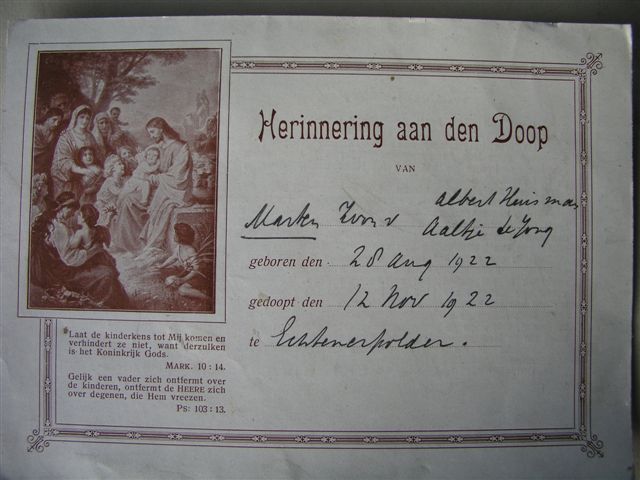 Herinnering aan den Doop
VAN
Marten zoon v Albert Huisman
Aaltje de Jong
geboren den 28 Aug 1922
gedoopt den 12 Nov 1922
te Echtenerpolder.
Laat de kinderkens tot Mij komen en
verhindert ze niet, want derzulken
is het Koninkrijk Gods.
MARK. 10:14.
Gelijk een vader zich ontfermt over
de kinderen, ontfermt de HEERE zich
over degenen, die Hem vreezen.
Ps: 103:13.